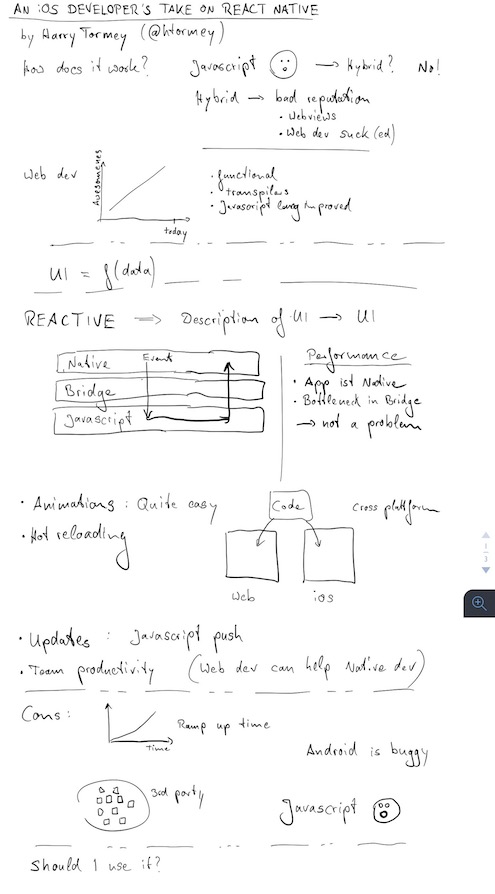 AN iOS DEVELOPER'S TAKE ON REACT NATIVE
by Harry Tormey (@htormey)
How does it work? Javascript → Hybrid? No!
Hybrid → bad reputation
• Webviews
• Web dev suck(ed)
Web dev
Awesomenes
today
• functional
• transpilers
• Javascript lang improved
UI = f(data)
REACTIVE ⇒ Description of UI → UI
Native Event
Bridge
Javascript
Performance
• App ist Native
• Bottleneck in Bridge
→ not a problem
• Animations : Quite easy
• Hot reloading
Code
cross platform
Web
ios
1
3
• Updates : Javascript push
• Team productivity (Web dev can help Native dev)
Cons :
Ramp up time
Time
Android is buggy
3rd party
Javascript
Should I use it?